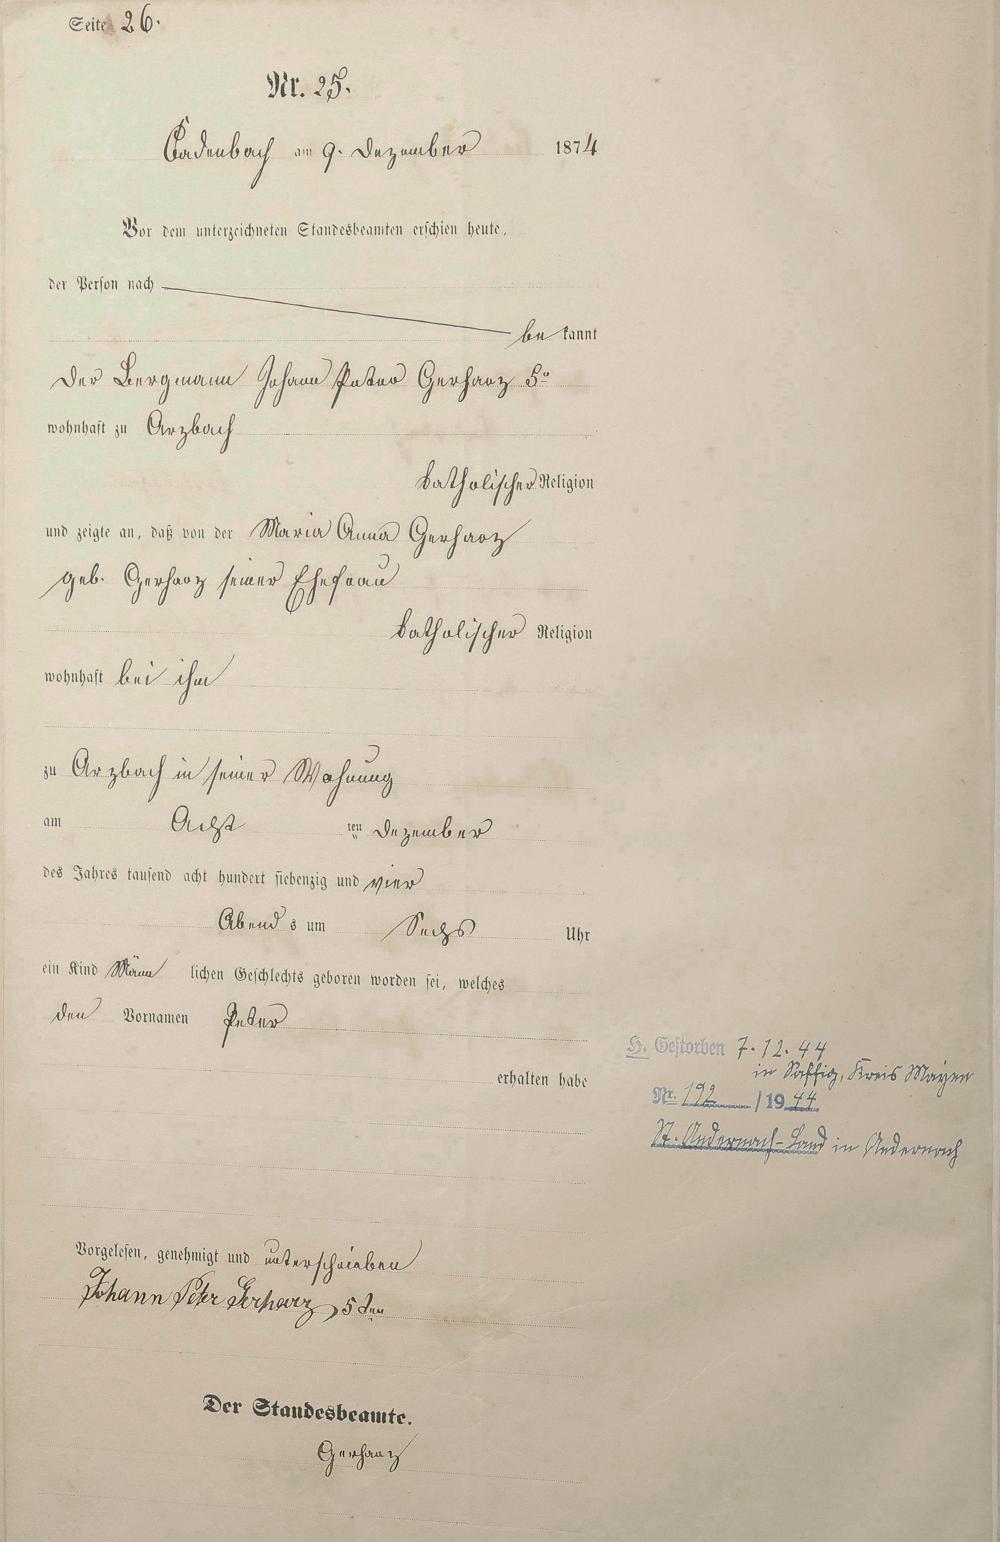 Seite 26.
Nr. 25.
Cadenbach am 9. Dezember 1874
Vor dem unterzeichneten Standesbeamten erschien heute,
der Person nach
be kannt
der Bergmann Johann Peter Gerharz 5r
wohnhaft zu Arzbach
katholischer Religion
und zeigte an, daß von der Maria Anna Gerharz
geb. Gerharz seiner Ehefrau
katholischer Religion
wohnhaft bei ihm
zu Arzbach in seiner Wohnung
am Acht ten Dezember
des Jahres tausend acht hundert siebenzig und vier
Abend s um Sechs Uhr
ein Kind Männ lichen Geschlechts geboren worden sei, welches
den Vornamen Peter
erhalten habe
H. Gestorben 7.12.44
in Saffig, Kreis Mayen
Nr. 192 /1944
St. Andernach-Land in Andernach
Vorgelesen, genehmigt und unterschrieben
Johann Peter Gerharz 5ten
Der Standesbeamte.
Gerharz